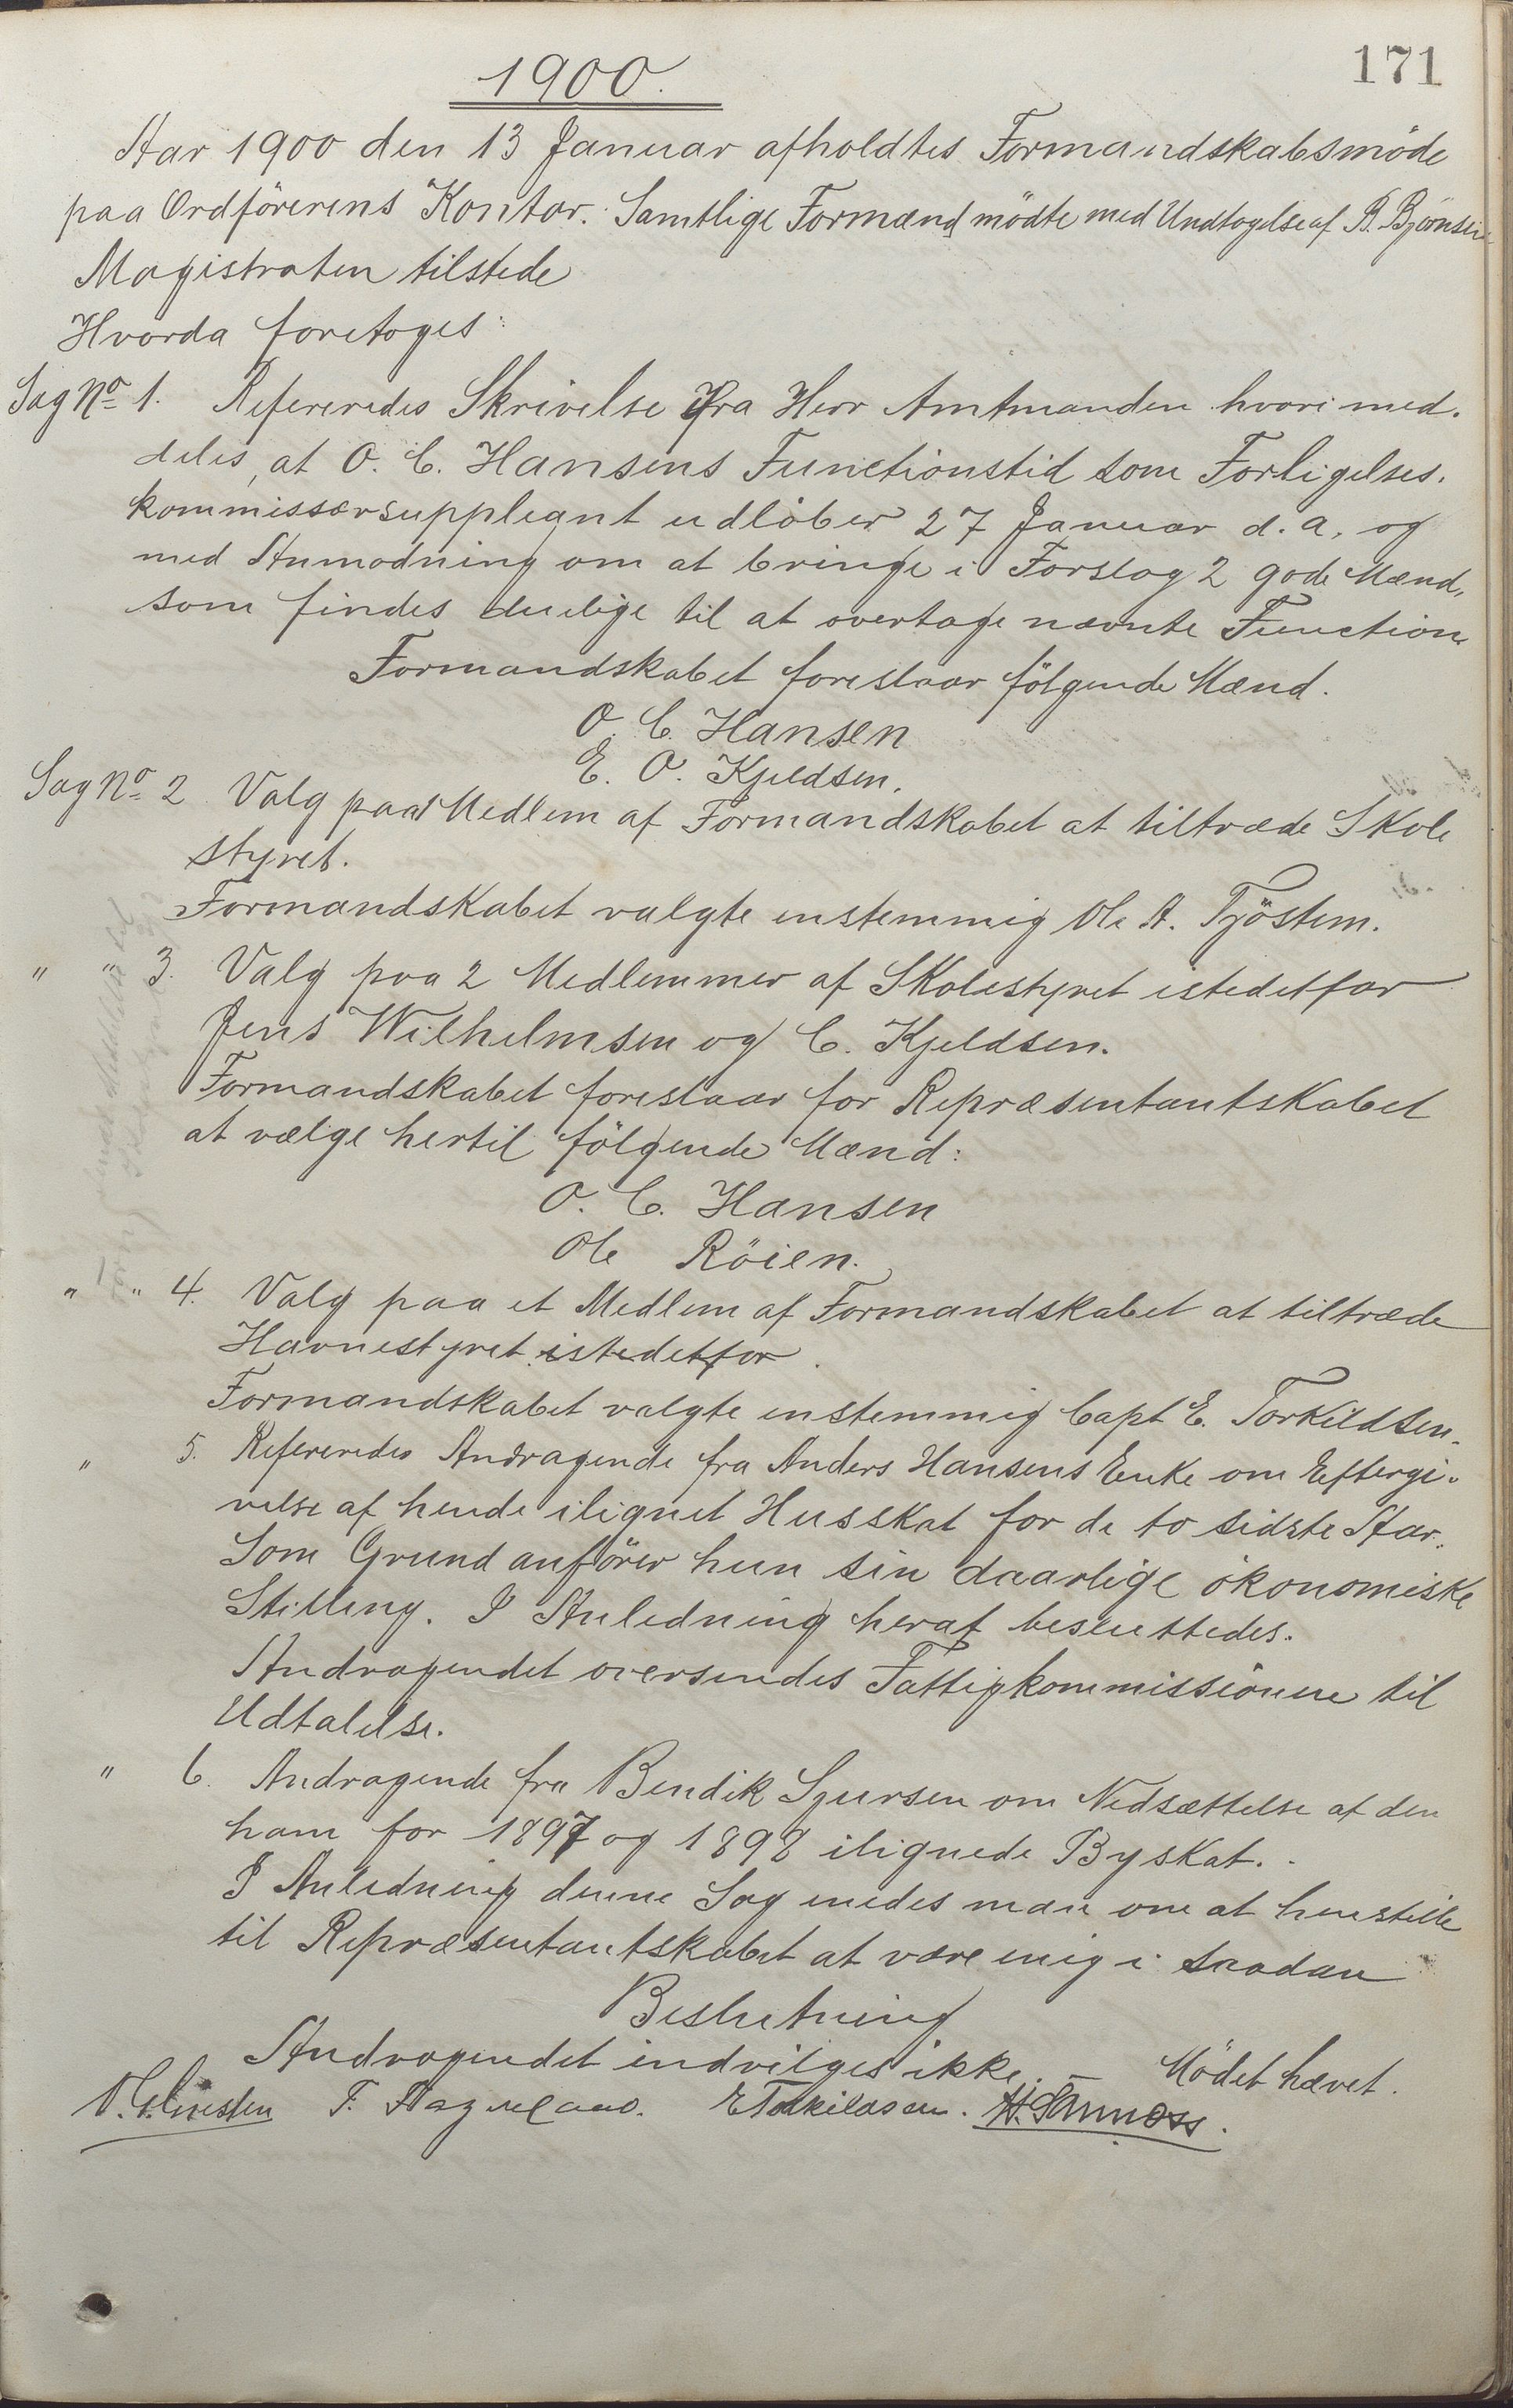 171
1900.
Aar 1900 den 13 Januar afholdtes Formandskabsmöde
paa Ordförerens Kontor. Samtlige Formænd mödte med Undtagelse af B. Bjørnsen
Magistraten tilstede
Hvorda foretoges:
Sag No 1. Refereredes Skrivelse fra Herr Amtmanden hvori med-
deles, at O. C. Hansens Functionstid som Forligelses-
kommissærsuppleant udlöber 27 Januar d.a. og
med Anmodning om at bringe i Forslag 2 gode Mænd,
som findes duelige til at overtage nævnte Function
Formandskabet foreslaar fölgende Mænd.
O. C. Hansen
E. O. Kjeldsen.
Sag No 2 Valg paa 1 Medlem af Formandskabet at tiltræde Skole
styret.
Formandskabet valgte enstemmig Ole A. Tjöstem.
" " 3. Valg paa 2 Medlemmer af Skolestyret istedetfor
Jens Wilhelmsen og C. Kjeldsen.
Formandskabet foreslaar for Repræsentantskabet
at vælge hertil fölgende Mænd:
O. C. Hansen
Ole Röien.
" " 4. Valg paa et Medlem af Formandskabet at tiltræde
Havnestyret istedetfor
Formandskabet valgte enstemmig Capt E. Torkildsen.
" 5. Refereredes Andragende fra Anders Hansens Enke om Eftergi-
velse af hende ilignet Husskat for de to sidste Aar.
Som Grund anförer hun sin daarlige ökonomiske
Stilling. I Anledning heraf besluttedes.
Andragendet oversendes Fattigkommissionen til
Udtalelse.
" 6. Andragende fra Bendik Sjursen om Nedsættelse af den
ham for 1897 og 1898 ilignede Byskat.
I Anledning denne Sag enedes man om at henstille
til Repræsentantskabet at være enig i saadan
Beslutning
Andragendet indvilges ikke. Mödet hævet.
F. Hagueland. E Torkildsen.